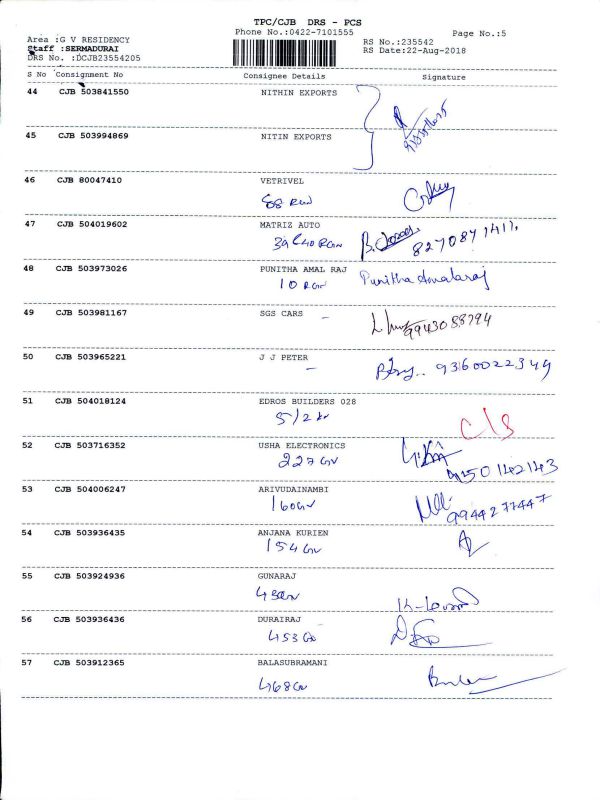 TPC/CJB DRS - PCS
Phone No.:0422-7101555
Page No.:5
Area :G V RESIDENCY
RS No.:235542
Staff :SERMADURAI
RS Date:22-Aug-2018
DRS No. :DCJB23554205
S No Consignment No Consignee Details Signature
44 CJB 503841550 NITHIN EXPORTS
45 CJB 503994869 NITIN EXPORTS
46 CJB 80047410 VETRIVEL
47 CJB 504019602 MATRIZ AUTO
8270871411
48 CJB 503973026 PUNITHA AMAL RAJ
10 Punitha Amalaraj
49 CJB 503981167 SGS CARS
- 9943088794
50 CJB 503965221 J J PETER
- 9360022349
51 CJB 504018124 EDROS BUILDERS 028
5/2 C/S
52 CJB 503716352 USHA ELECTRONICS
227
53 CJB 504006247 ARIVUDAINAMBI
160 9944277447
54 CJB 503936435 ANJANA KURIEN
154
55 CJB 503924936 GUNARAJ
56 CJB 503936436 DURAIRAJ
453
57 CJB 503912365 BALASUBRAMANI
468